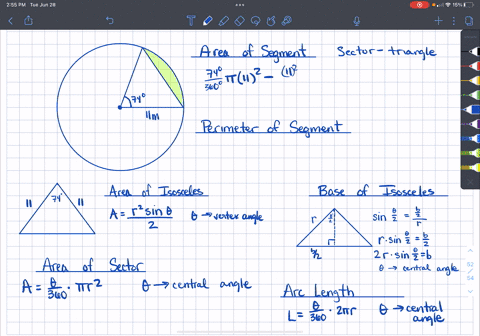 2:55 PM Tue Jun 28
15%
Area of Segment
Sector - triangle
74°/360° π(11)² - (11)²
74°
11m
Perimeter of Segment
Area of Isosceles
A = r² sin θ / 2
θ → vertex angle
11
74°
11
Base of Isosceles
r
θ/2
b/2
sin θ/2 = b/2 / r
r · sin θ/2 = b/2
2r · sin θ/2 = b
θ → central angle
Area of Sector
A = θ/360 · πr²
θ → central angle
Arc Length
L = θ/360 · 2πr
θ → central angle
52
54